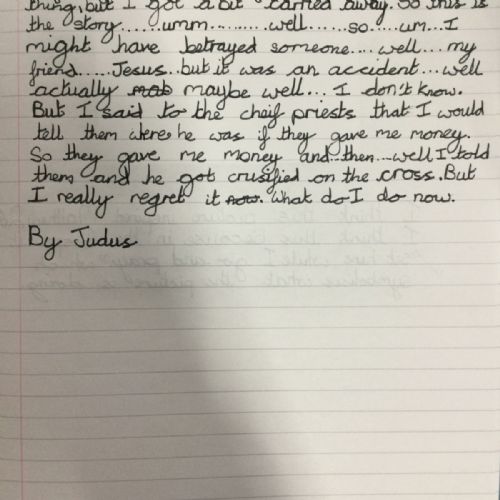 thing, but I got a bit carried away. So this is
the story......umm.........well......so.....um...I
might have betrayed someone....well...my
friend.....Jesus..but it was an accident...well
actually maybe well... I don't know.
But I said to the cheif priests that I would
tell them were he was if they gave me money.
So they gave me money and then...well I told
them and he got crusified on the cross. But
I really regret it now. What do I do now.
By Judus